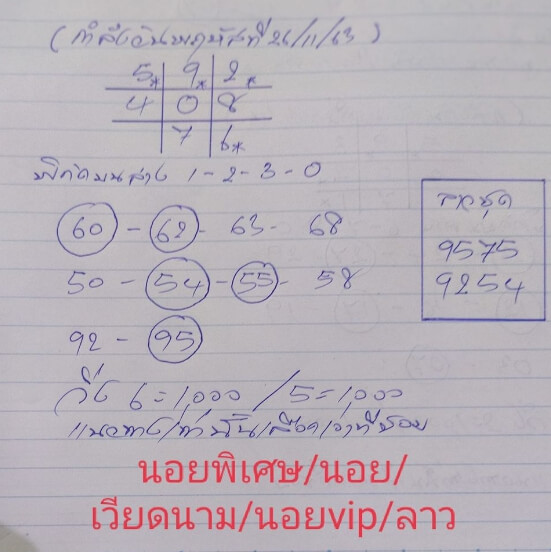 (กำลังวันพฤหัสที่ 26/11/63)
5* 9* 2*
4 0 8
7 6*
พิกัดบนล่าง 1-2-3-0
60 - 62 - 63 - 68
50 - 54 - 55 - 58
92 - 95
วิ่ง 6=1,000 / 5=1,000
แนวทางเท่านั้น
รวยชุด
9575
9254
นอยพิเศษ/นอย/
เวียดนาม/นอยvip/ลาว